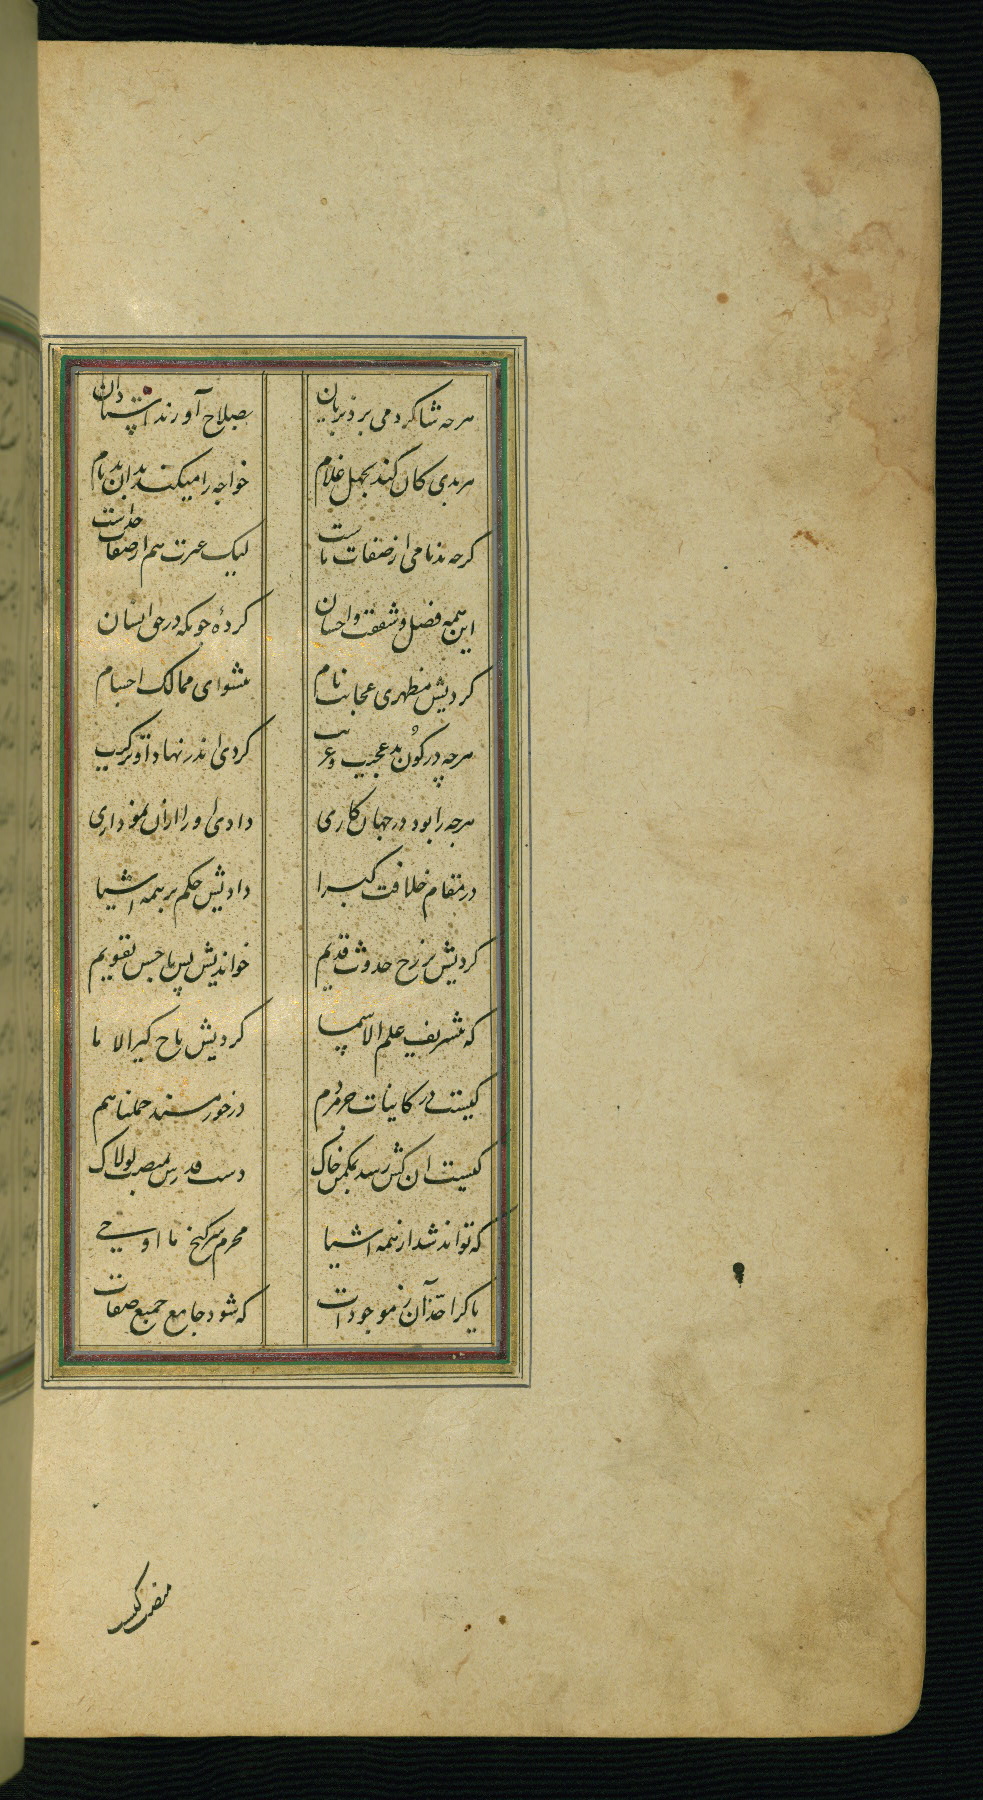 هرچه شاکرد می برد بزیان بصلاح آورند استادان
هر بدی کان کند بجهل غلام خواجه را میکند بدان بدنام
کرچه بدنامی از صفات ماست لیک عزت هم از صفات خداست
این همه فضل و شفقت و احسان کردهٔ چونکه در حق انسان
کردیش مظهری عجایب نام پیشوای ممالک اجسام
هرچه در کون بد عجیب و غریب کردی اندر نهاد او ترکیب
هرچه را بود در جهان کاری دادی او را ازان نموداری
در مقام خلافت کبرا دادیش حکم بر همه اشیا
کردیش برزخ حدوث و قدیم خواندیش پس باحسن تقویم
که بتشریف علم الاسما کردیش تاج کبر الا ما
کیست در کاینات جز مردم در خور مسند حملناهم
کیست ان کش رسد بمکمن خاک دست قدرش بمنصب لولاک
که تواند شد از همه اشیا محرم سر کنج ما اوحی
یا کرا حد آن ز موجودات که شود جامع جمیع صفات